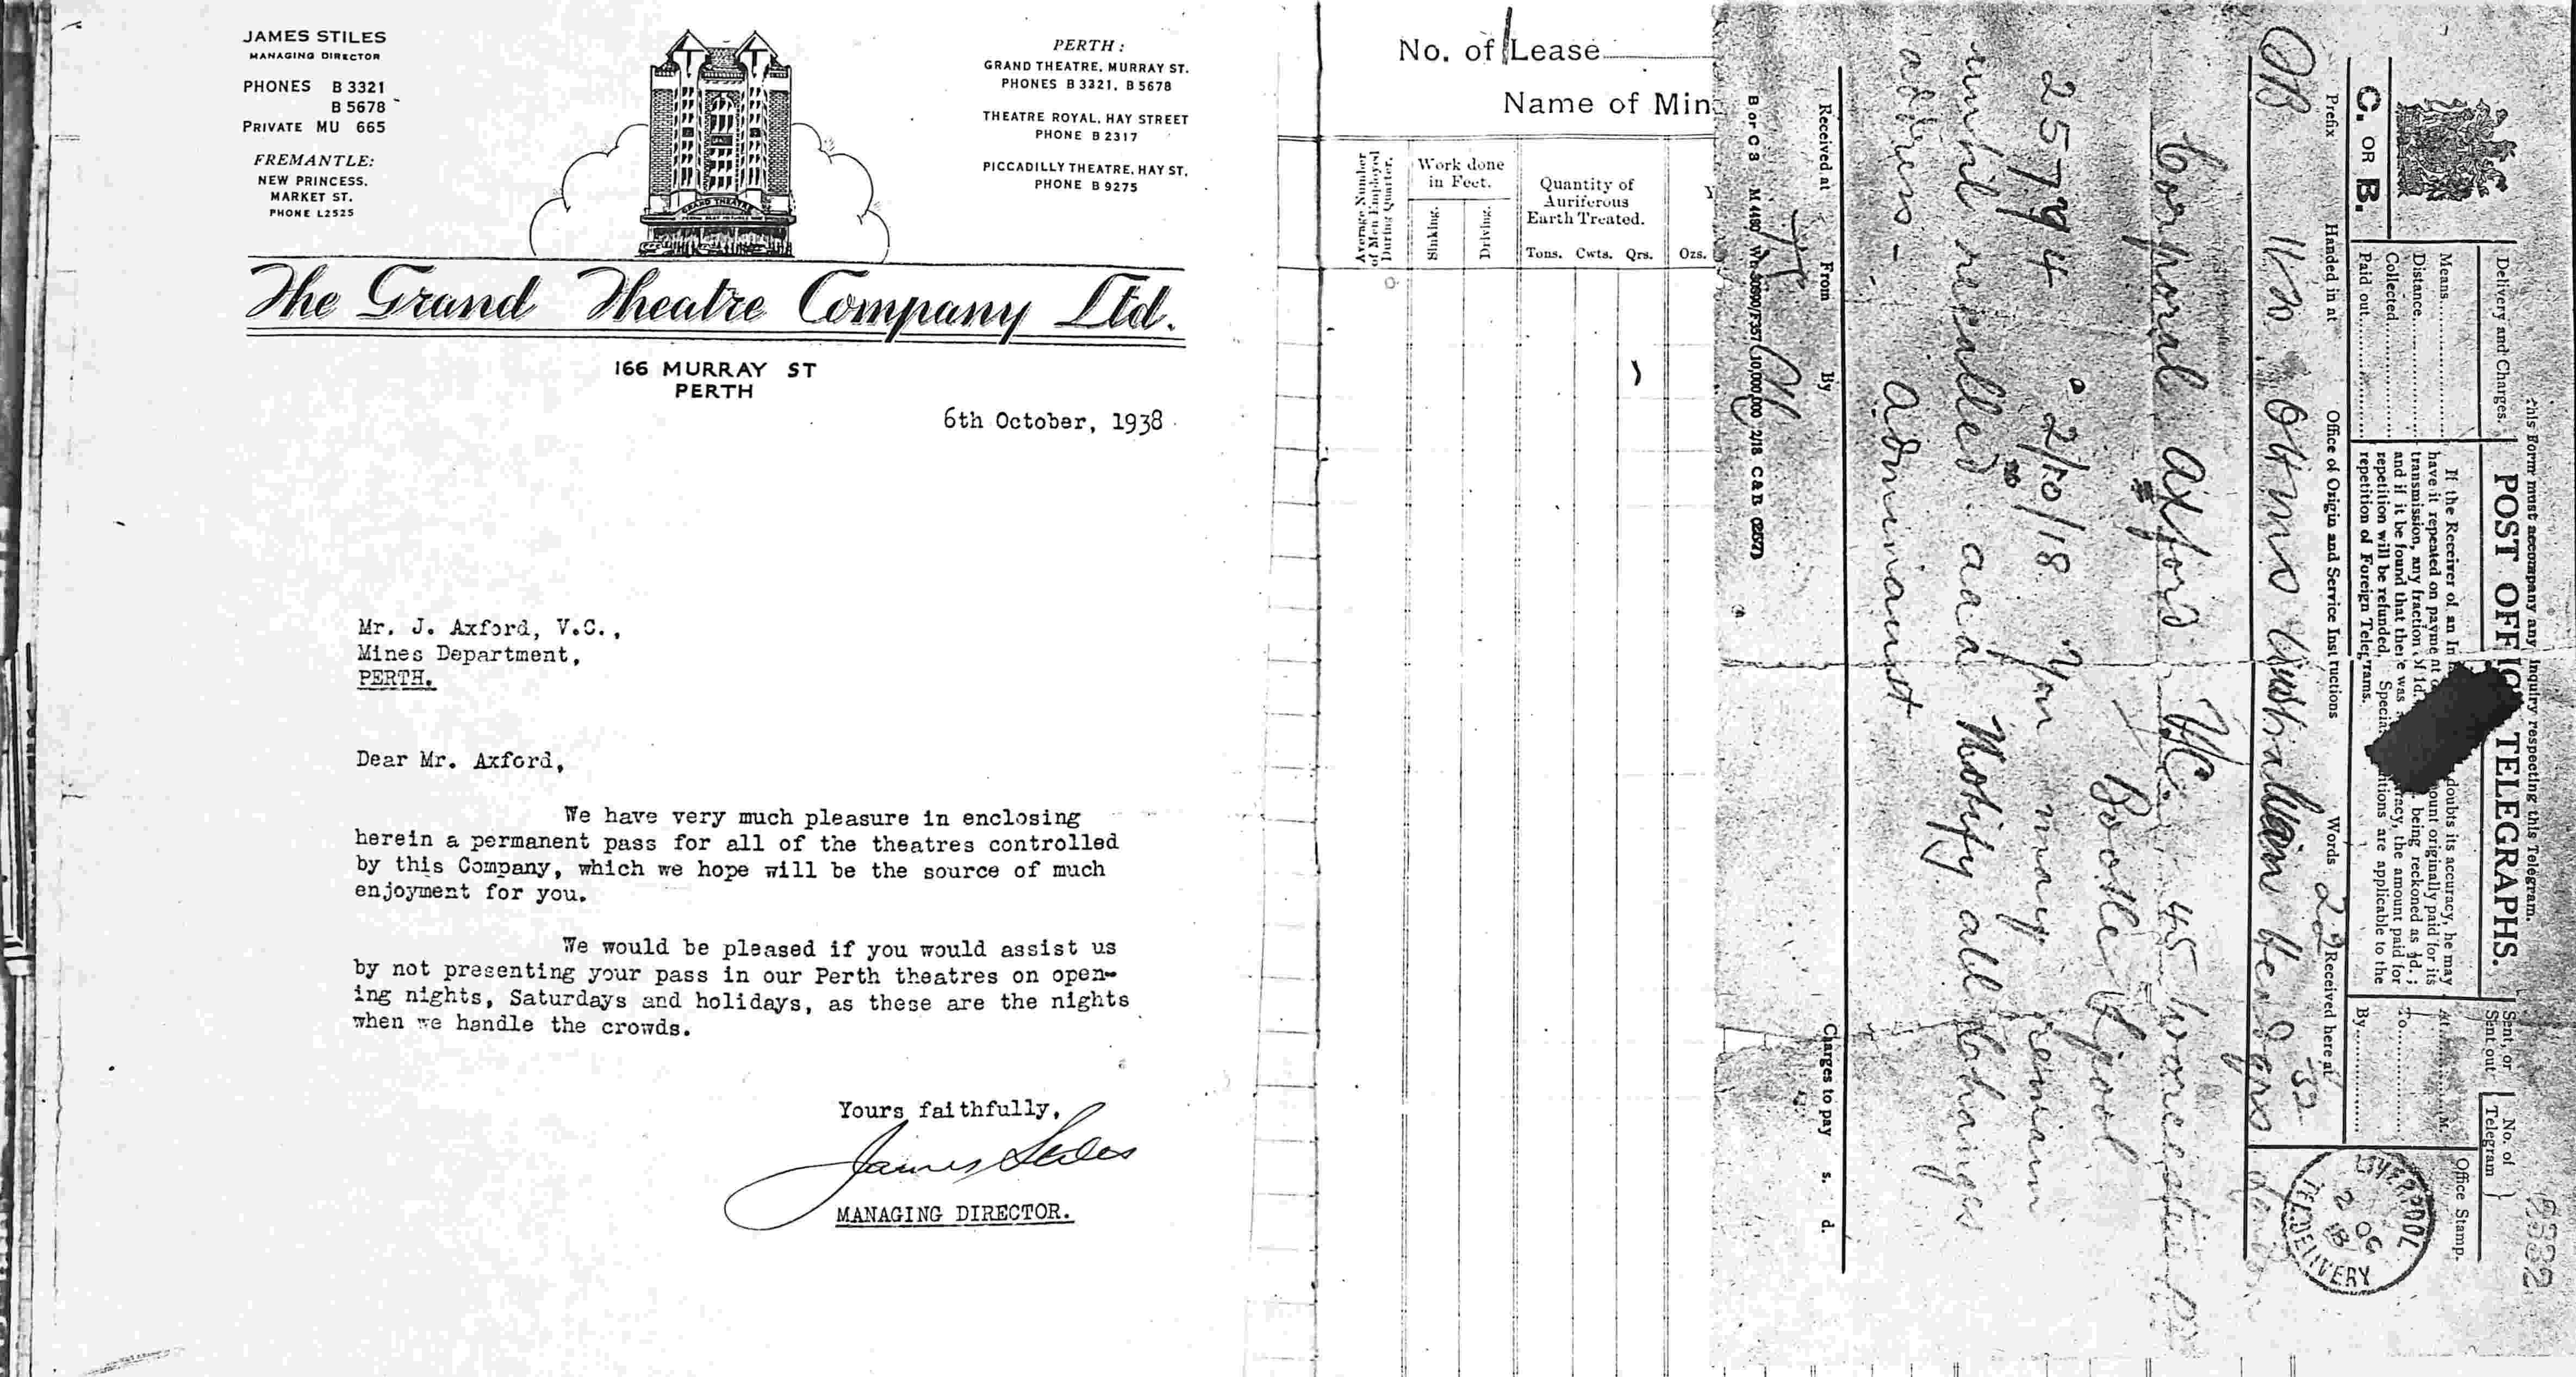 JAMES STILES
MANAGING DIRECTOR
PHONES B 3321
B 5678
PRIVATE MU 665
FREMANTLE:
NEW PRINCESS.
MARKET ST.
PHONE L2525
GRAND THEATRE
PERTH:
GRAND THEATRE, MURRAY ST.
PHONES B 3321, B 5678
THEATRE ROYAL, HAY STREET
PHONE B 2317
PICCADILLY THEATRE, HAY ST,
PHONE B 9275
The Grand Theatre Company Ltd.
166 MURRAY ST
PERTH
6th October, 1938
Mr. J. Axford, V.C.,
Mines Department,
PERTH.
Dear Mr. Axford,
We have very much pleasure in enclosing
herein a permanent pass for all of the theatres controlled
by this Company, which we hope will be the source of much
enjoyment for you.
We would be pleased if you would assist us
by not presenting your pass in our Perth theatres on open-
ing nights, Saturdays and holidays, as these are the nights
when we handle the crowds.
Yours faithfully,
James Stiles
MANAGING DIRECTOR.
No. of Lease
Name of Min
Average Number
of Men Employed
during Quarter.
Work done
in Feet.
Sinking.
Driving.
Quantity of
Auriferous
Earth Treated.
Tons. Cwts. Qrs.
Ozs.
This Form must accompany any inquiry respecting this Telegram.
POST OFFICE TELEGRAPHS.
C. OR B.
Delivery and Charges.
Means
Distance
Collected
Paid out
If the Receiver of an In doubts its accuracy, he may
have it repeated on payment ount originally paid for its
transmission, any fraction of 1d. being reckoned as 1d.;
and if it be found that there was racy, the amount paid for
repetition will be refunded. Special tions are applicable to the
repetition of Foreign Telegrams.
Sent, or
Sent out
At M.
To
By
No. of
Telegram
Office Stamp.
LIVERPOOL
2 OC
18
TEL. DELIVERY
Prefix Handed in at Office of Origin and Service Instructions Words 22 Received here at
OB 11.20 OHMS
Corporal Axford VC 45
Bootle Lpool
25794 2/10/18 You may remain
until recalled aaa Notify all changes
address -
Received at From By Charges to pay s. d.